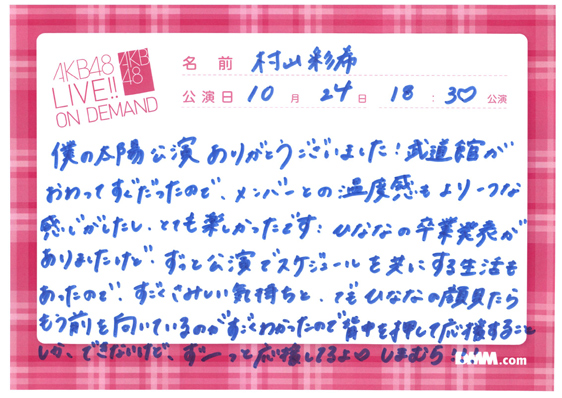 AKB48
LIVE!!
ON DEMAND
AKB
48
名前 村山彩希
公演日 10月24日 18:30公演
僕の太陽公演ありがとうございました!武道館が
おわってすぐだったので、メンバーとの温度感もより一つな
感じがしたし、とても楽しかったです! ひななの卒業発表が
ありましたけど、ずっと公演でスケジュールを共にする生活も
あったので、すごくさみしい気持ちと、でもひななの顔見たら
もう前を向いているのがすごくわかったので背中を押して応援すること
しか、できないけど、ずーっと応援してるよ♡ しまむら!!!
DMM.com